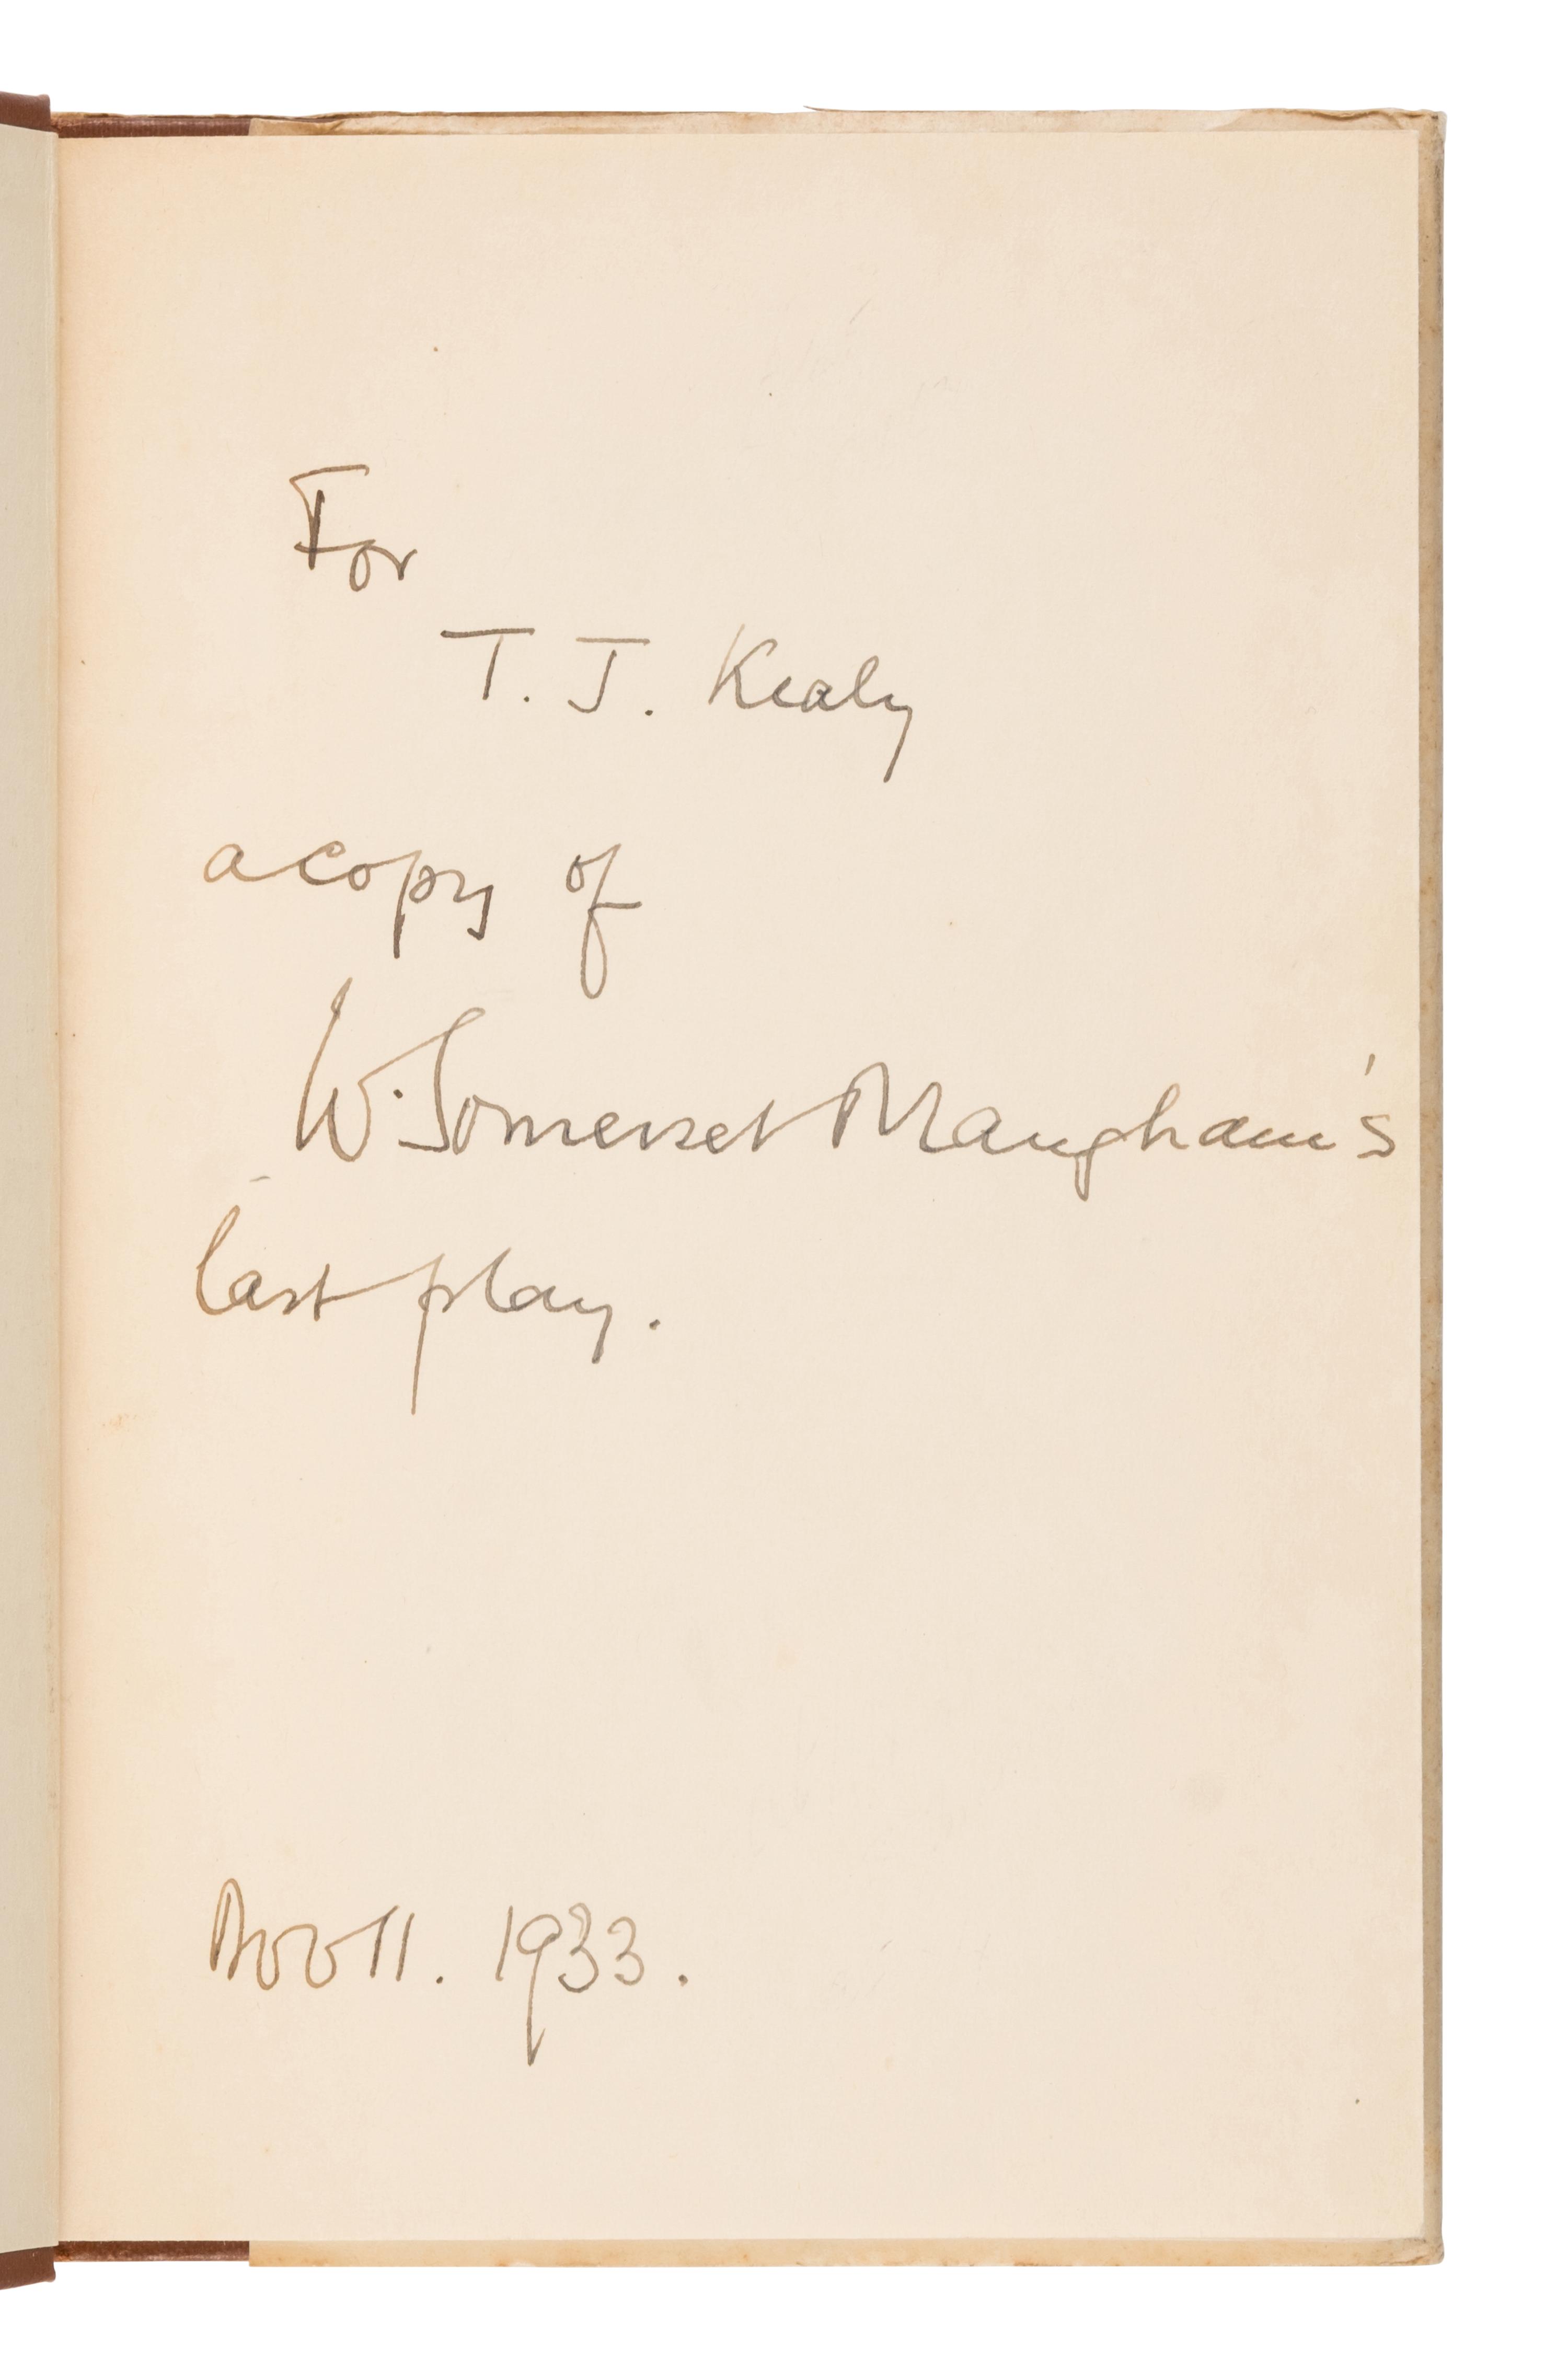 For
T. J. Kealy
a copy of
W. Somerset Maugham's
last play.
Nov 11. 1933.